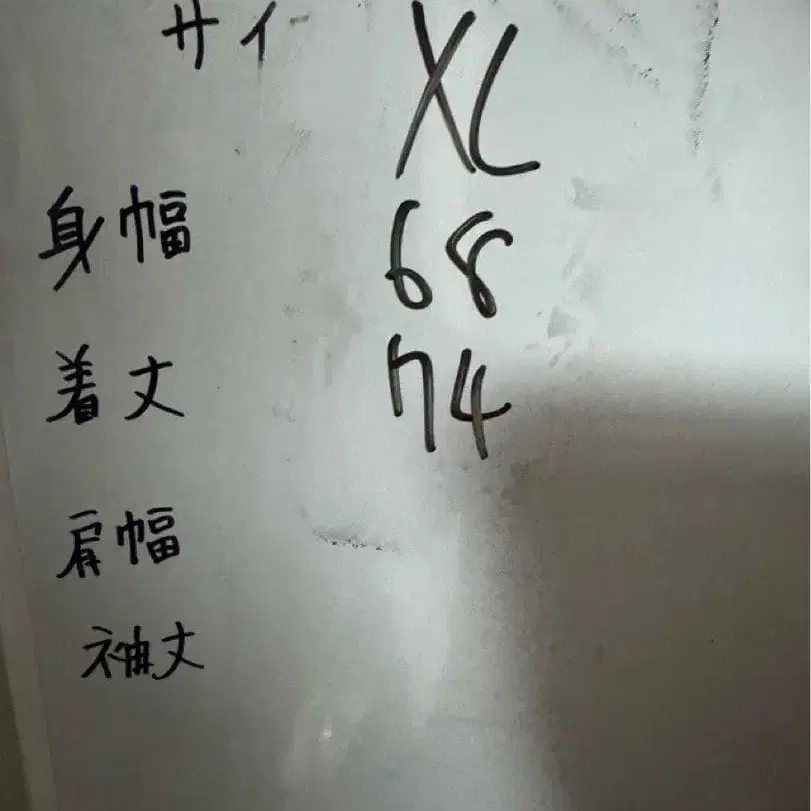 サイ XL
身幅 68
着丈 74
肩幅
袖丈